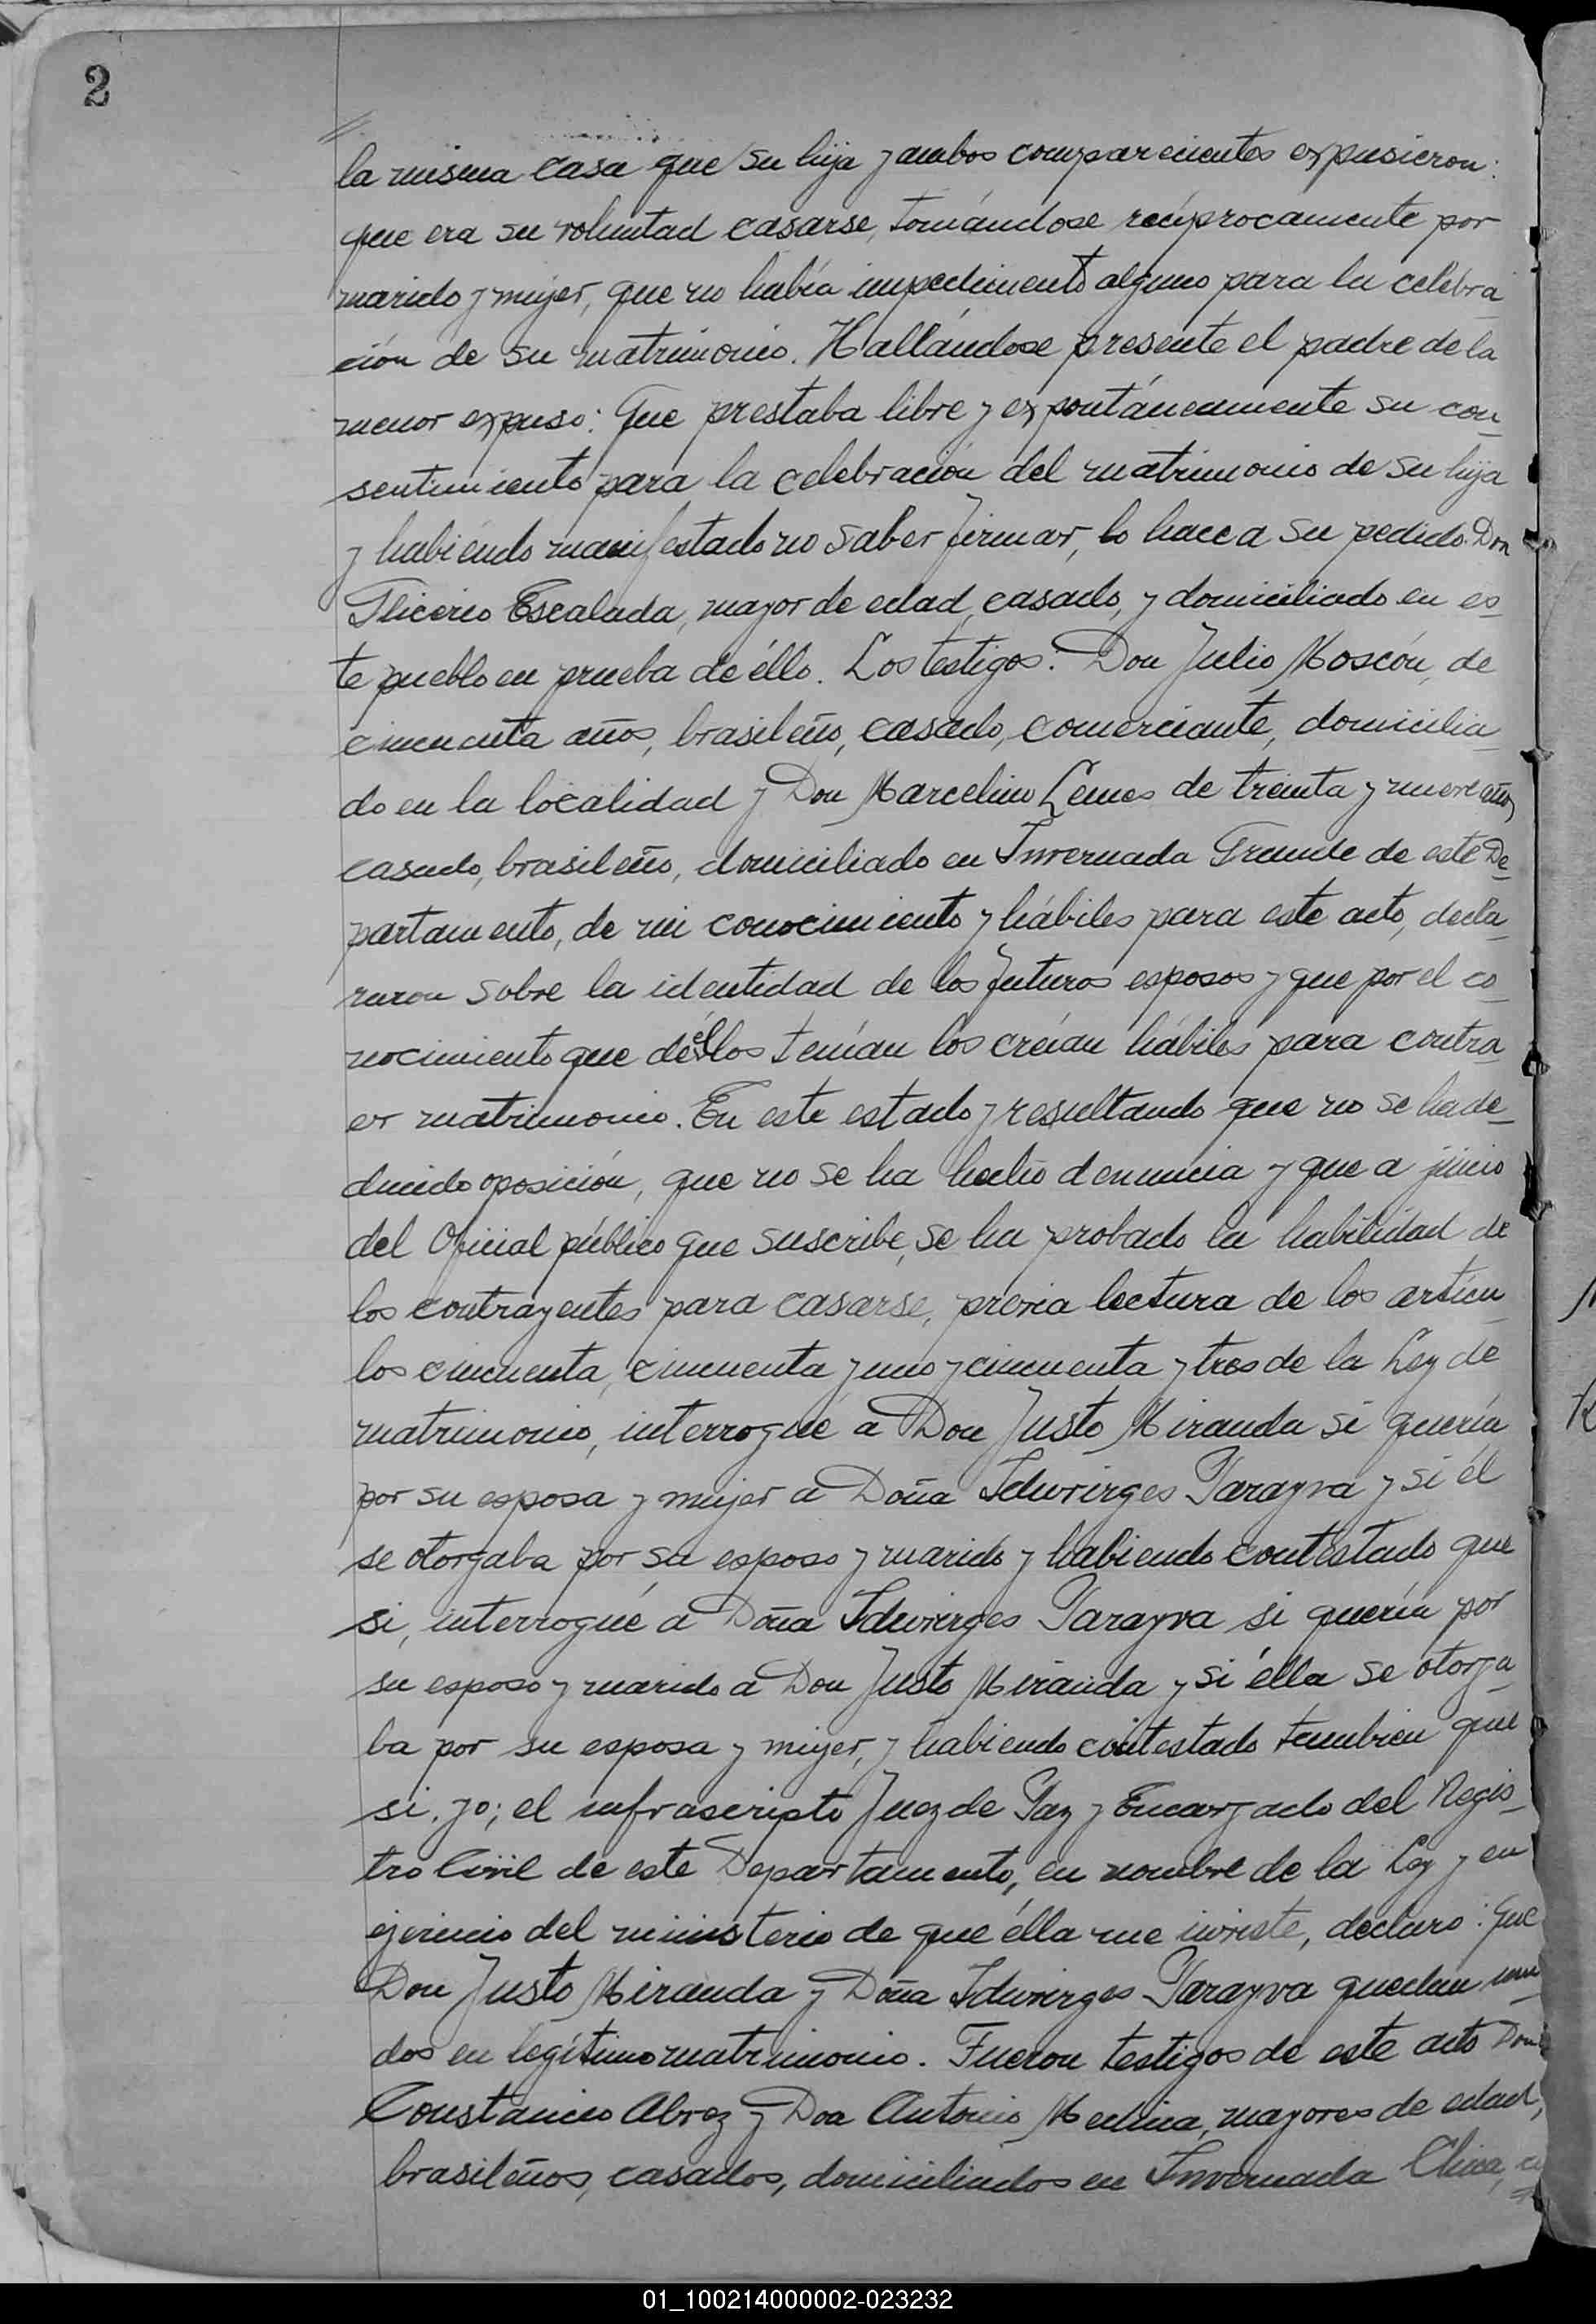 2
la misma casa que su hija y ambos comparecientes expusieron:
que era su voluntad casarse, tomándose recíprocamente por
marido y mujer, que no había impedimento alguno para la celebra
ción de su matrimonio. Hallándose presente el padre de la
menor expuso: Que prestaba libre y expontáneamente su con
sentimiento para la celebración del matrimonio de su hija
y habiendo manifestado no saber firmar, lo hace a su pedido Don
Glicerio Escalada, mayor de edad, casado, y domiciliado en es
te pueblo en prueba de éllo. Los testigos: Don Julio Moscón, de
cincuenta años, brasileño, casado, comerciante, domicilia
do en la localidad y Don Marcelino Lemes de treinta y nueve años
casado, brasileño, domiciliado en Invernada Grande de este De
partamento, de mi conocimiento y hábiles para este acto, decla
raron sobre la identidad de los futuros esposos y que por el co
nocimiento que de éllos tenían los creían hábiles para contra
er matrimonio. En este estado y resultando que no se ha de
ducido oposición, que no se ha hecho denuncia y que a juicio
del Oficial público que suscribe, se ha probado la habilidad de
los contrayentes para casarse, previa lectura de los artícu
los cincuenta, cincuenta y uno y cincuenta y tres de la Ley de
matrimonio, interrogué a Don Justo Miranda si quería
por su esposa y mujer a Doña Iduvirges Parayva y si él
se otorgaba por su esposo y marido y habiendo contestado que
si, interrogué a Doña Iduvirges Parayva si quería por
su esposo y marido a Don Justo Miranda y si élla se otorga
ba por su esposa y mujer, y habiendo contestado tambien que
si. yo; el infrascripto Juez de Paz y Encargado del Regis
tro Civil de este Departamento, en nombre de la Ley y en
ejercicio del ministerio de que élla me inviste, declaro: Que
Don Justo Miranda y Doña Iduvirges Parayva quedan uni
dos en legítimo matrimonio. Fueron testigos de este acto Don
Constancio Abrez y Don Antonio Medina, mayores de edad,
brasileños, casados, domiciliados en Invernada Chica,
01_100214000002-023232